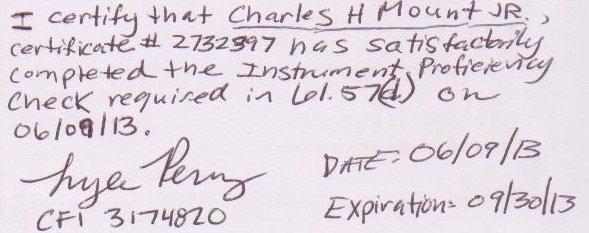 I certify that Charles H Mount JR.,
certificate # 2732397 has satisfactorily
completed the Instrument Proficiency
Check required in 61.57(d) on
06/09/13.
DATE: 06/09/13
CFI 3174820
Expiration: 09/30/13